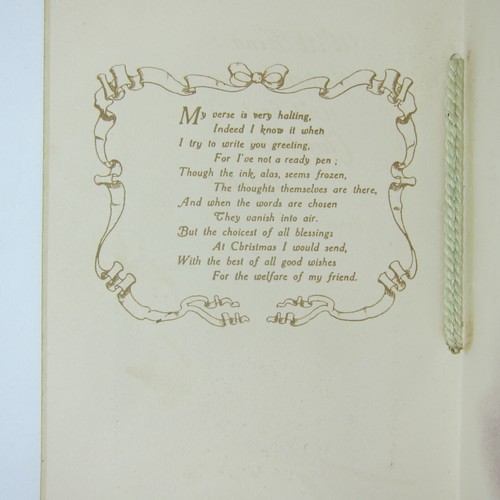 My verse is very halting,
Indeed I know it when
I try to write you greeting,
For I've not a ready pen;
Though the ink, alas, seems frozen,
The thoughts themselves are there,
And when the words are chosen
They vanish into air.
But the choicest of all blessings
At Christmas I would send,
With the best of all good wishes
For the welfare of my friend.